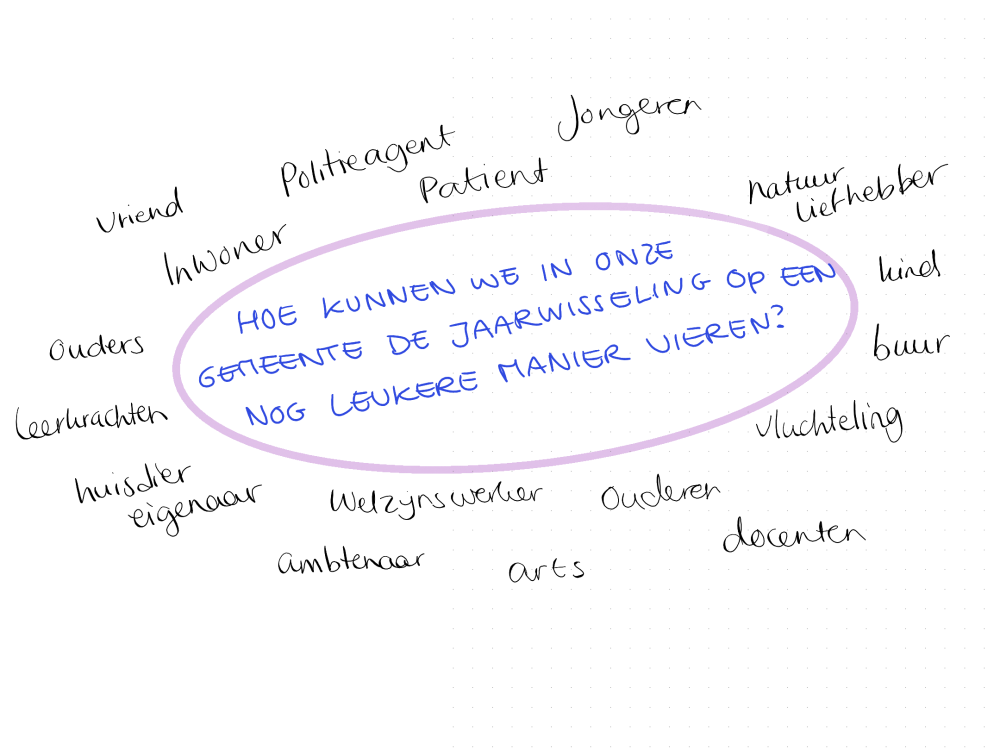 Jongeren
Politieagent
Patient
natuur
liefhebber
vriend
Inwoner
HOE KUNNEN WE IN ONZE
GEMEENTE DE JAARWISSELING OP EEN
NOG LEUKERE MANIER VIEREN?
kind
ouders
buur
leerkrachten
vluchteling
huisdier
eigenaar
Welzijnswerker
ouderen
docenten
ambtenaar
arts